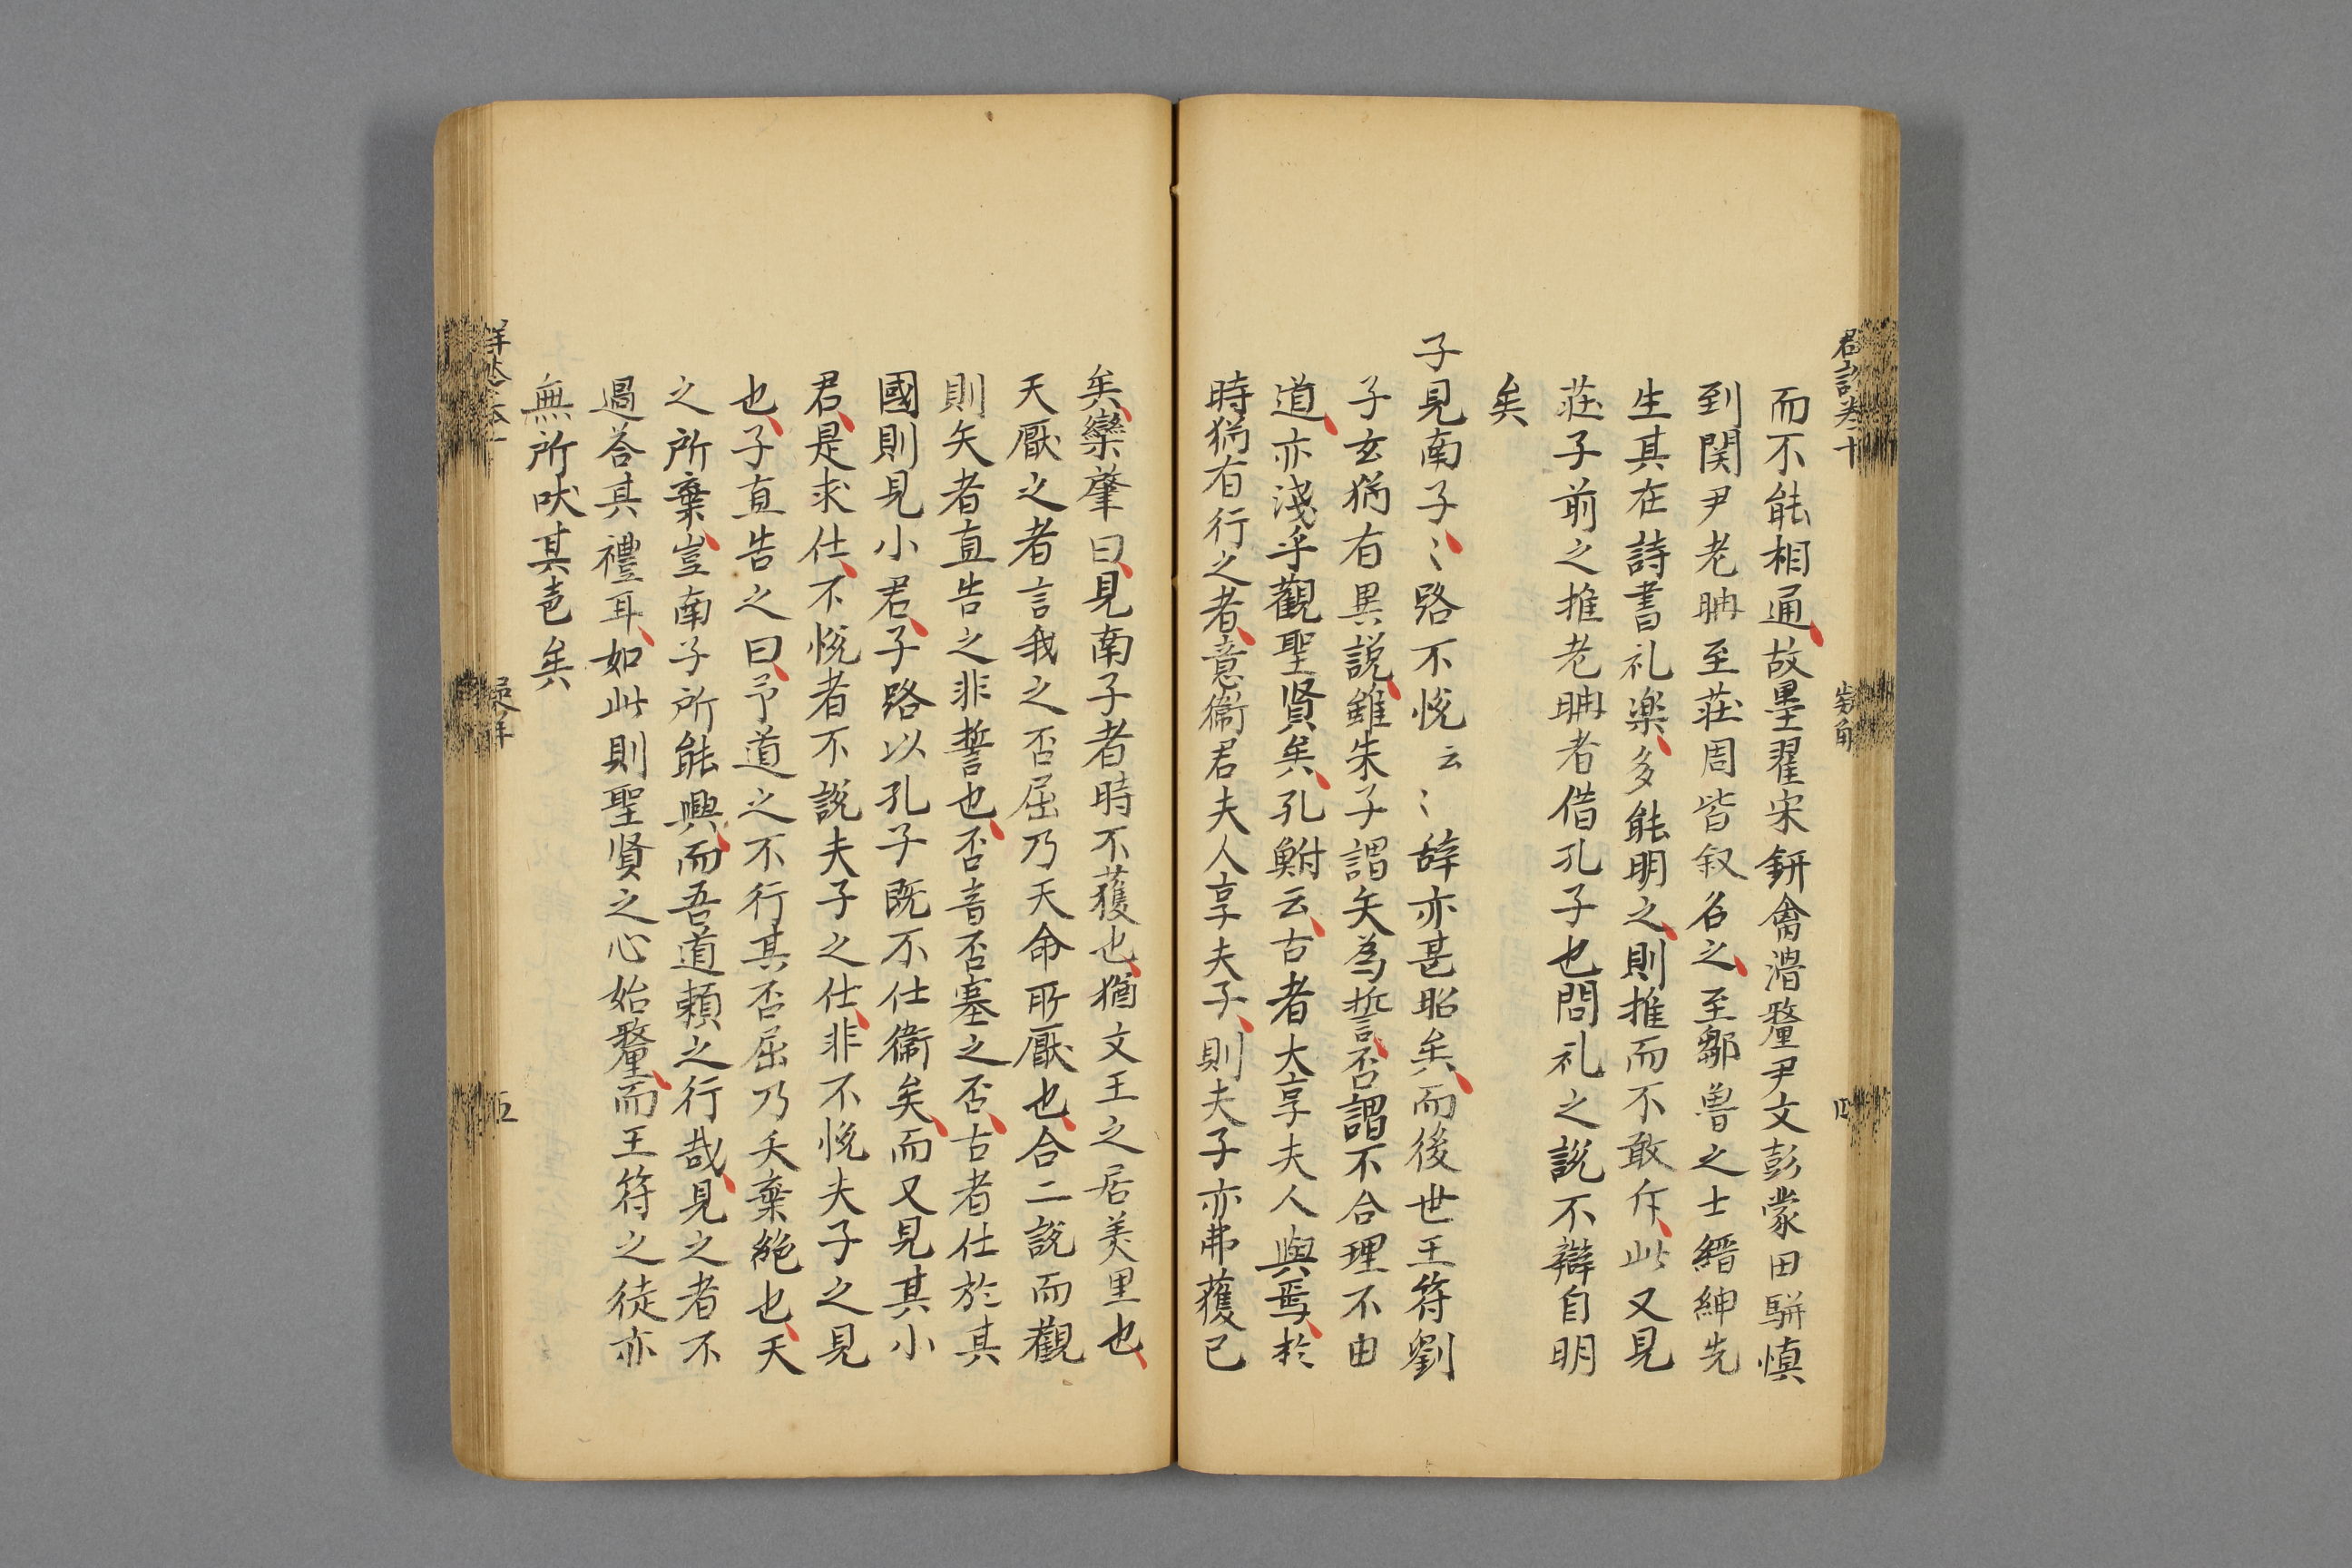 而不能相通故墨翟宋鈃禽滑釐尹文彭蒙田駢慎
到関尹老聃至莊周皆叙名之至鄒魯之士縉紳先
生其在詩書礼楽多能明之則推而不敢斥此又見
莊子前之推老聃者借孔子也問礼之說不辯自明
矣
子見南子〻路不悅云〻辞亦甚昭矣而後世王符劉
子玄猶有異説雖朱子謂矢為誓否謂不合理不由
道亦淺乎觀聖賢矣孔鮒云古者大享夫人與焉於
時猶有行之者意衞君夫人享夫子則夫子亦弗獲已
矣欒肇曰見南子者時不獲也猶文王之居羑里也
天厭之者言我之否屈乃天命所厭也合二說而觀
則矢者直告之非誓也否音否塞之否古者仕於其
國則見小君子路以孔子既不仕衞矣而又見其小
君是求仕不悅者不說夫子之仕非不悅夫子之見
也子直告之曰予道之不行其否屈乃天棄絶也天
之所棄豈南子所能興而吾道頼之行哉見之者不
過荅其禮耳如此則聖賢之心始釐而王符之徒亦
無所吠其声矣
四
五